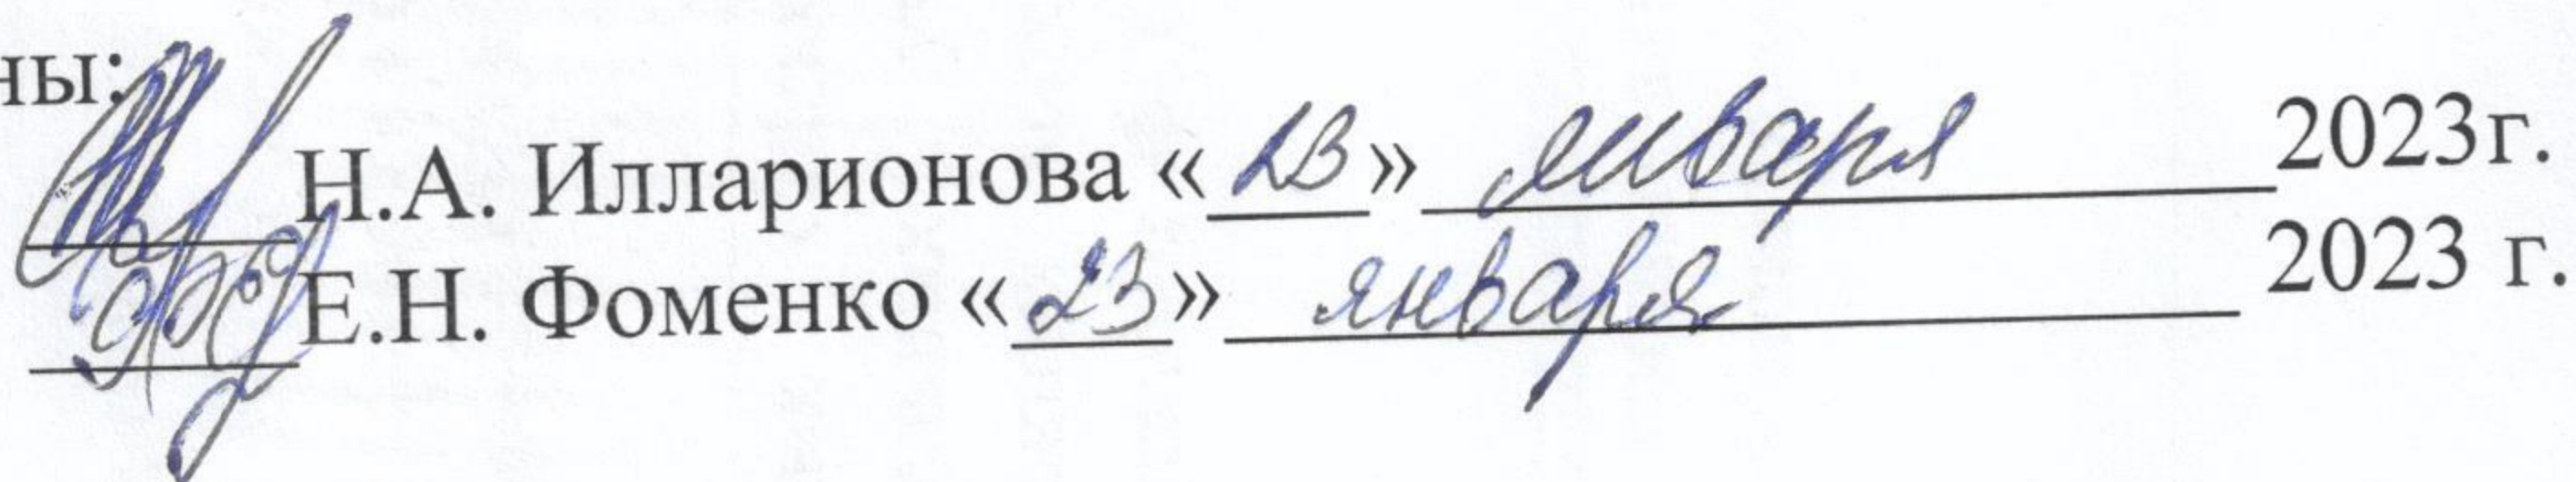 ны:
Н.А. Илларионова «23» января 2023г.
Е.Н. Фоменко «23» января 2023 г.